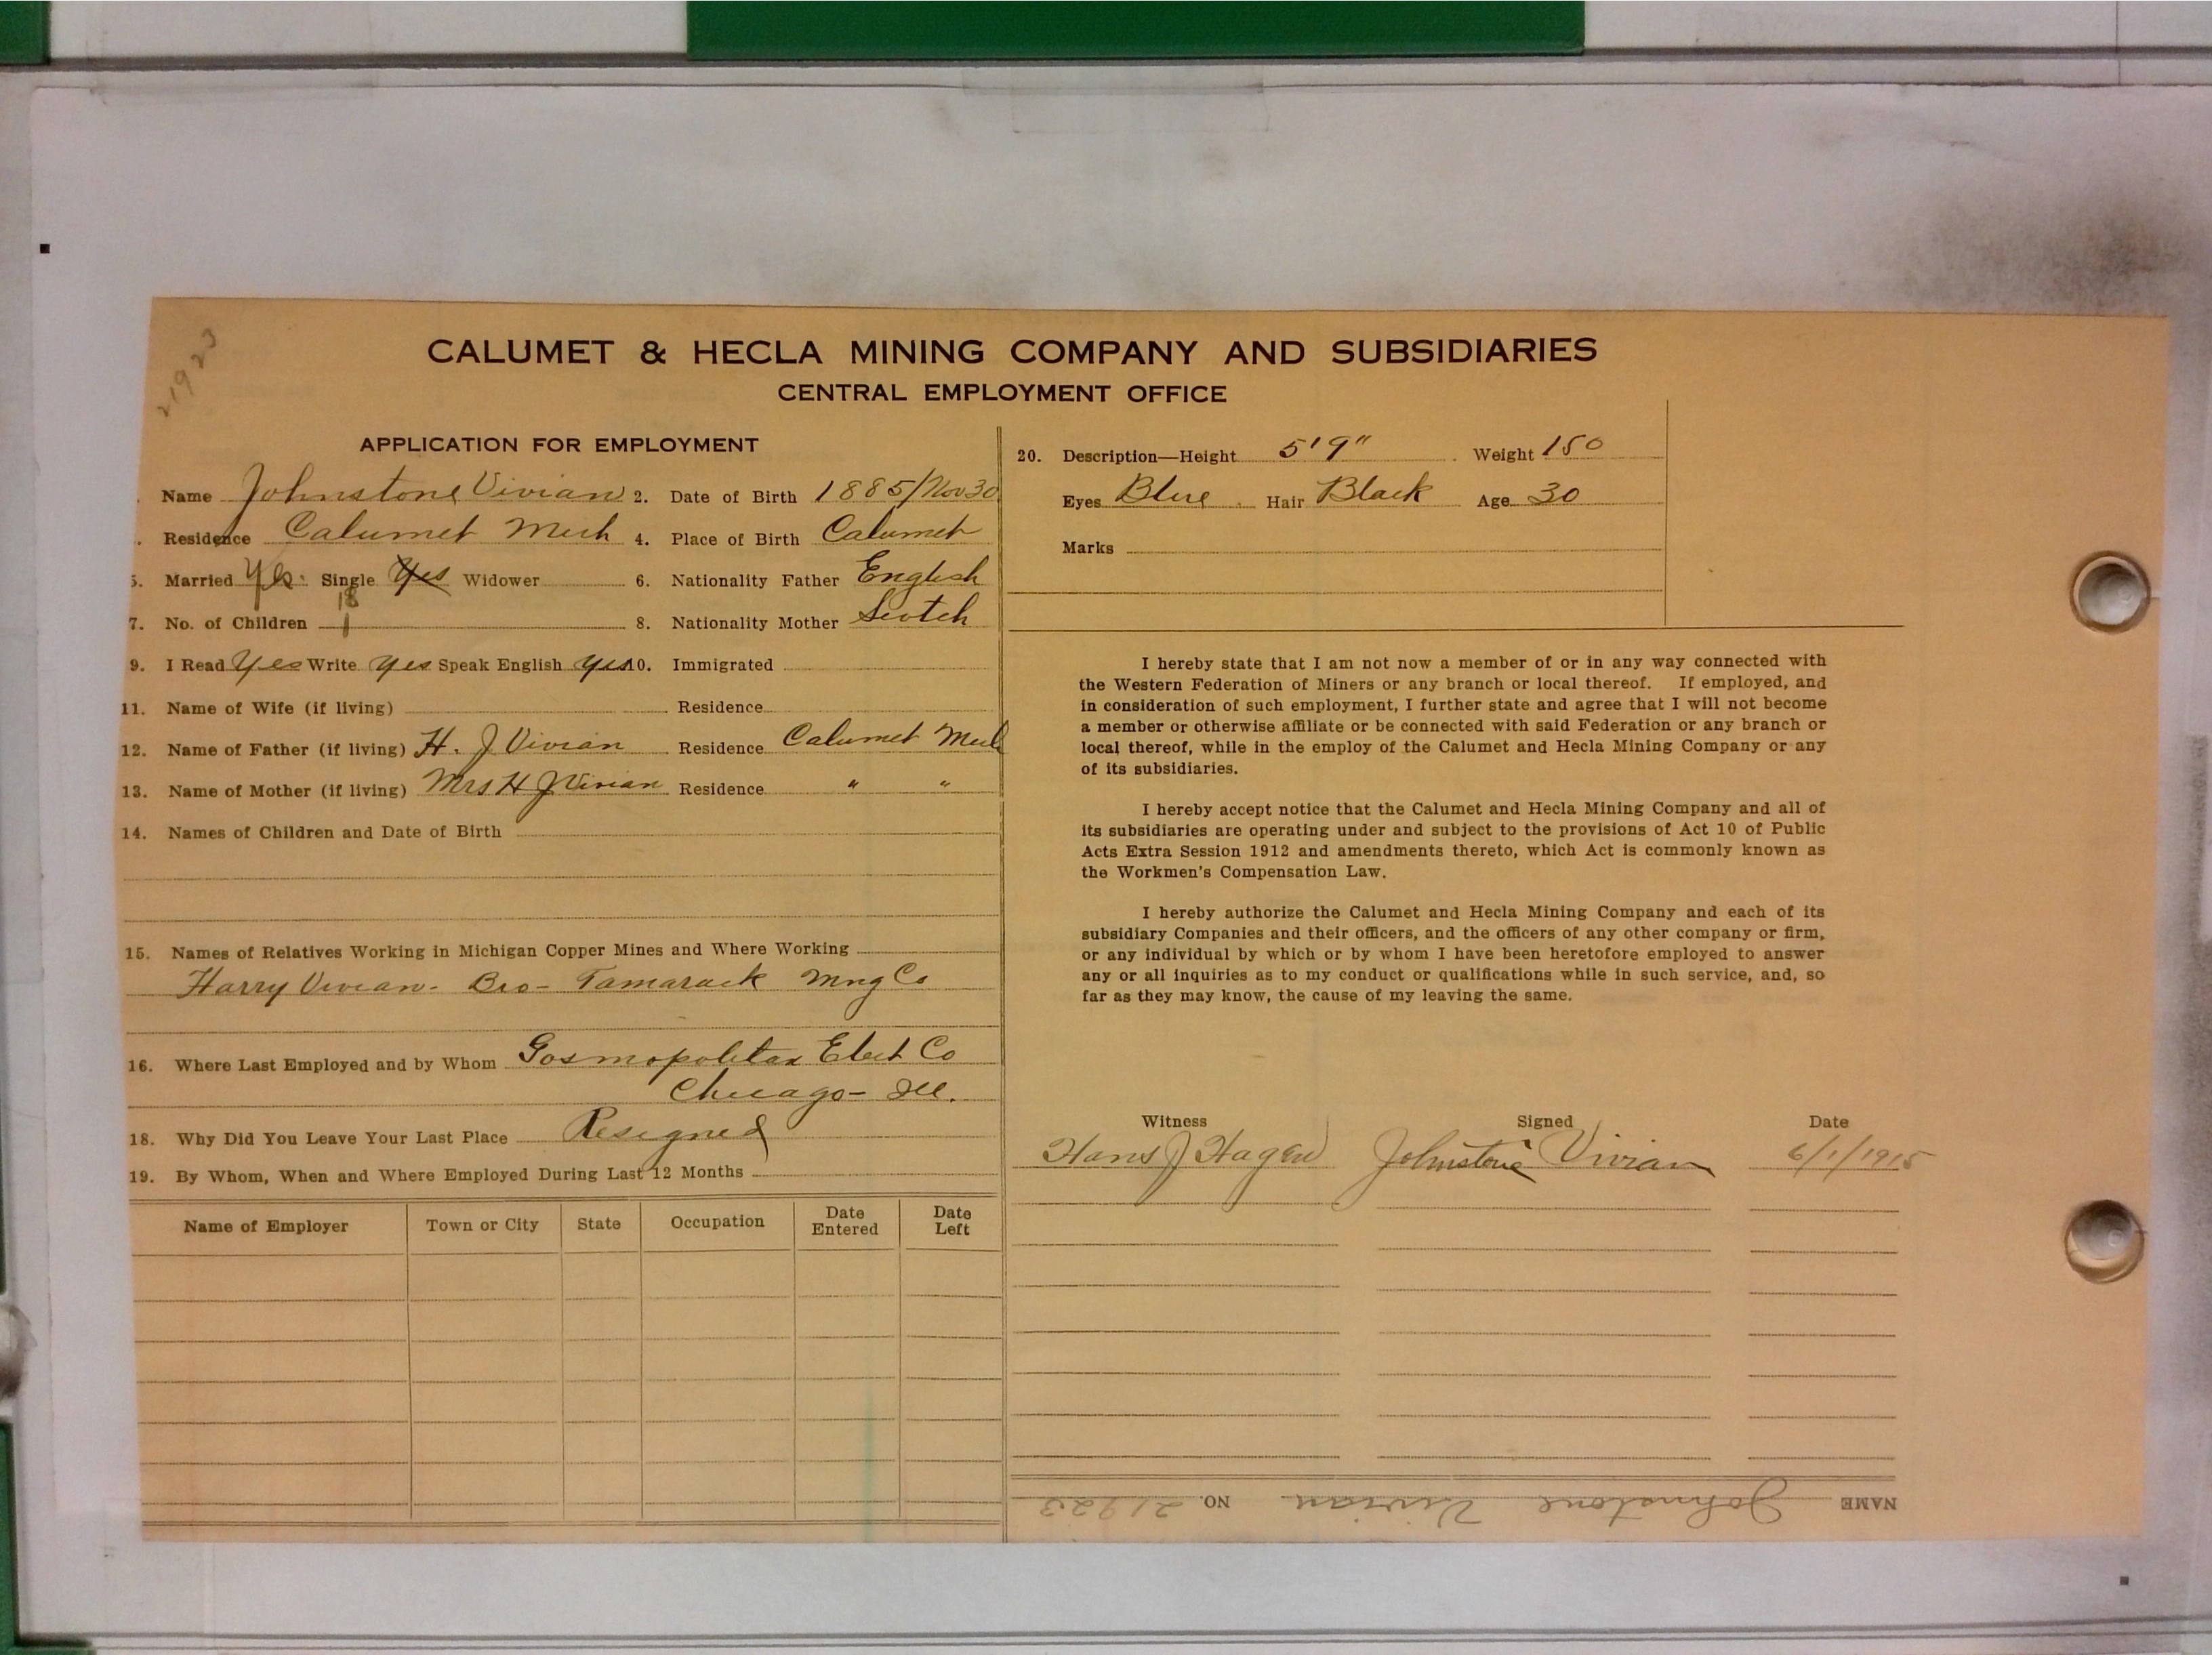 21923
CALUMET & HECLA MINING COMPANY AND SUBSIDIARIES
CENTRAL EMPLOYMENT OFFICE
APPLICATION FOR EMPLOYMENT
Name Johnstone Vivian 2. Date of Birth 1885/Nov 30
Residence Calumet Mich 4. Place of Birth Calumet
5. Married Yes. Single Yes Widower 6. Nationality Father English
7. No. of Children 1 8. Nationality Mother Scotch
9. I Read Yes Write Yes Speak English Yes 10. Immigrated
11. Name of Wife (if living) Residence
12. Name of Father (if living) H. J Vivian Residence Calumet Mich
13. Name of Mother (if living) Mrs H J Vivian Residence " "
14. Names of Children and Date of Birth
15. Names of Relatives Working in Michigan Copper Mines and Where Working
Harry Vivian - Bro - Tamarack Mng Co
16. Where Last Employed and by Whom Cosmopolitan Elect Co
Chicago - Ill.
18. Why Did You Leave Your Last Place Resigned
19. By Whom, When and Where Employed During Last 12 Months
Name of Employer Town or City State Occupation Date Entered Date Left
20. Description—Height 5'9" Weight 150
Eyes Blue Hair Black Age 30
Marks
I hereby state that I am not now a member of or in any way connected with
the Western Federation of Miners or any branch or local thereof. If employed, and
in consideration of such employment, I further state and agree that I will not become
a member or otherwise affiliate or be connected with said Federation or any branch or
local thereof, while in the employ of the Calumet and Hecla Mining Company or any
of its subsidiaries.
I hereby accept notice that the Calumet and Hecla Mining Company and all of
its subsidiaries are operating under and subject to the provisions of Act 10 of Public
Acts Extra Session 1912 and amendments thereto, which Act is commonly known as
the Workmen's Compensation Law.
I hereby authorize the Calumet and Hecla Mining Company and each of its
subsidiary Companies and their officers, and the officers of any other company or firm,
or any individual by which or by whom I have been heretofore employed to answer
any or all inquiries as to my conduct or qualifications while in such service, and, so
far as they may know, the cause of my leaving the same.
Witness Signed Date
Hans J Hagen Johnstone Vivian 6/1/1915
NAME Johnstone Vivian NO. 21923